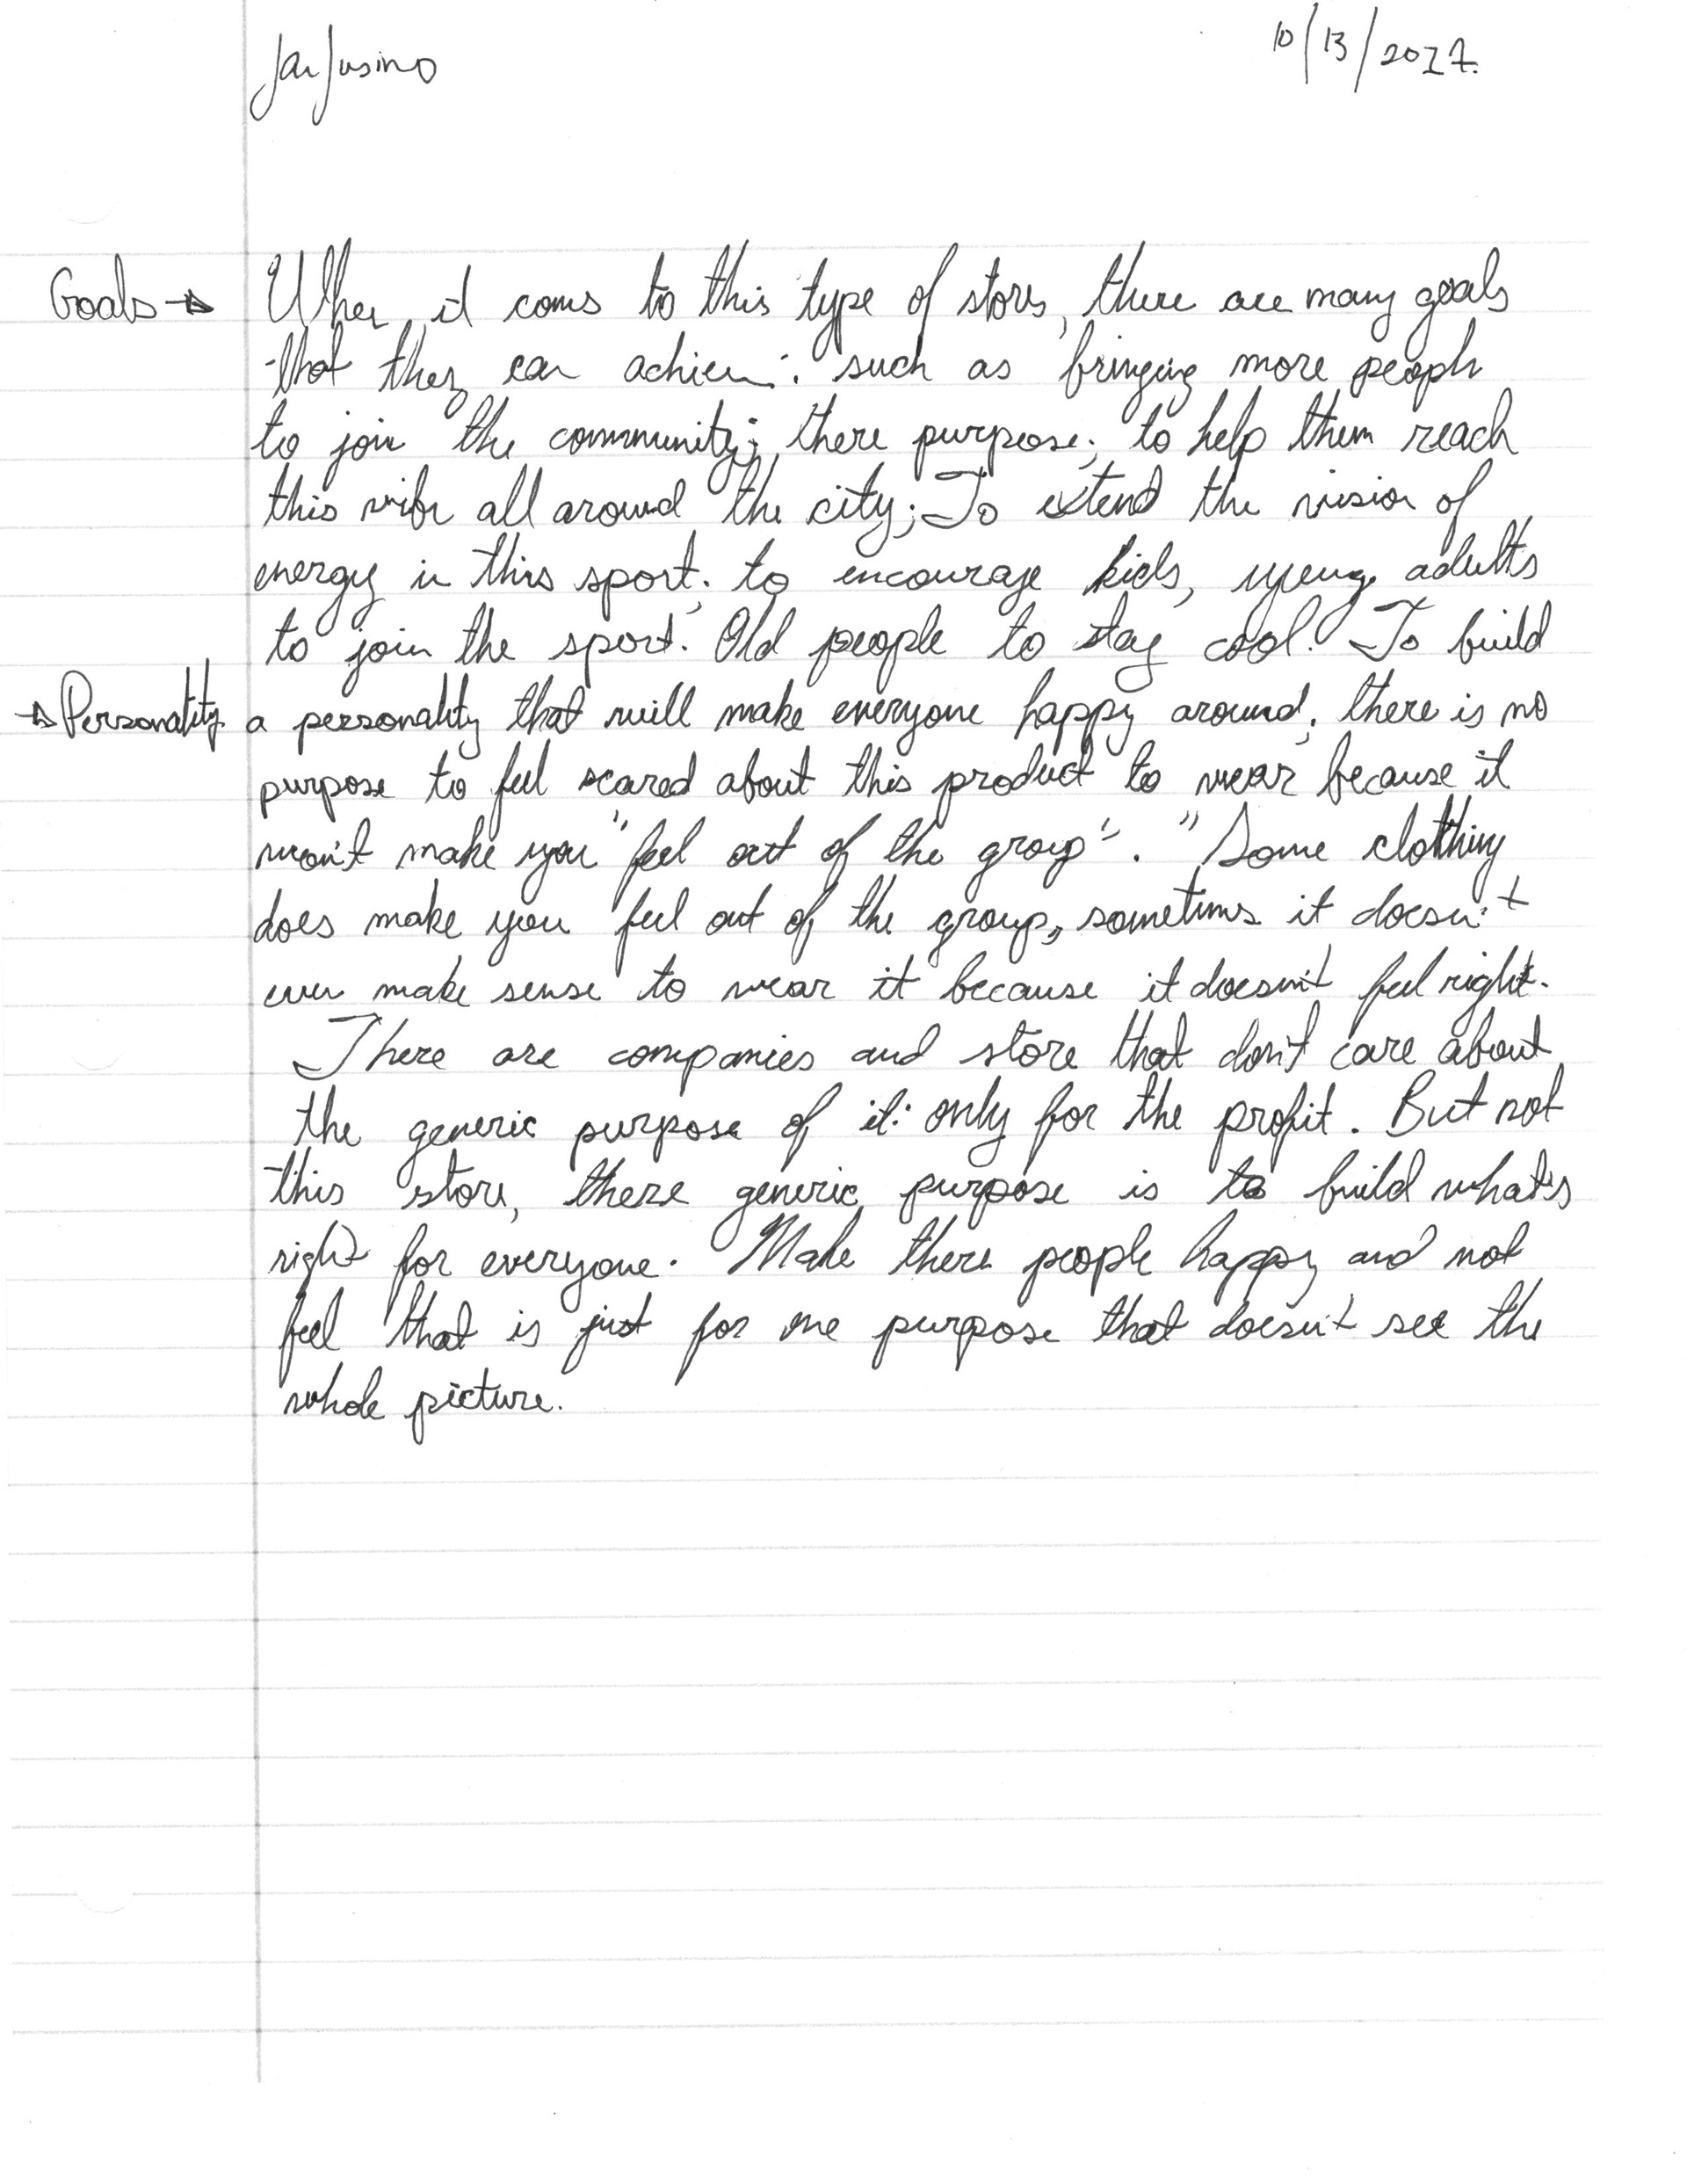 10/13/2017.
Goals → When it coms to this type of store, there are many goals
that they can achieve: such as bringing more people
to join the commmunity; there purpose; to help them reach
this vibe all around the city; To extend the vision of
energy in this sport; to encourage kids, young adults
to join the sport. Old people to stay cool. To build
→ Personality a personality that will make everyone happy around; there is no
purpose to feel scared about this product to wear because it
won't make you "feel out of the group". "Some clothing
does make you feel out of the group", sometimes it doesn't
even make sense to wear it because it doesn't feel right.
There are companies and store that don't care about
the generic purpose of it: only for the profit. But not
this store, there generic purpose is to build what's
right for everyone. Make there people happy and not
feel that is just for one purpose that doesn't see the
whole picture.